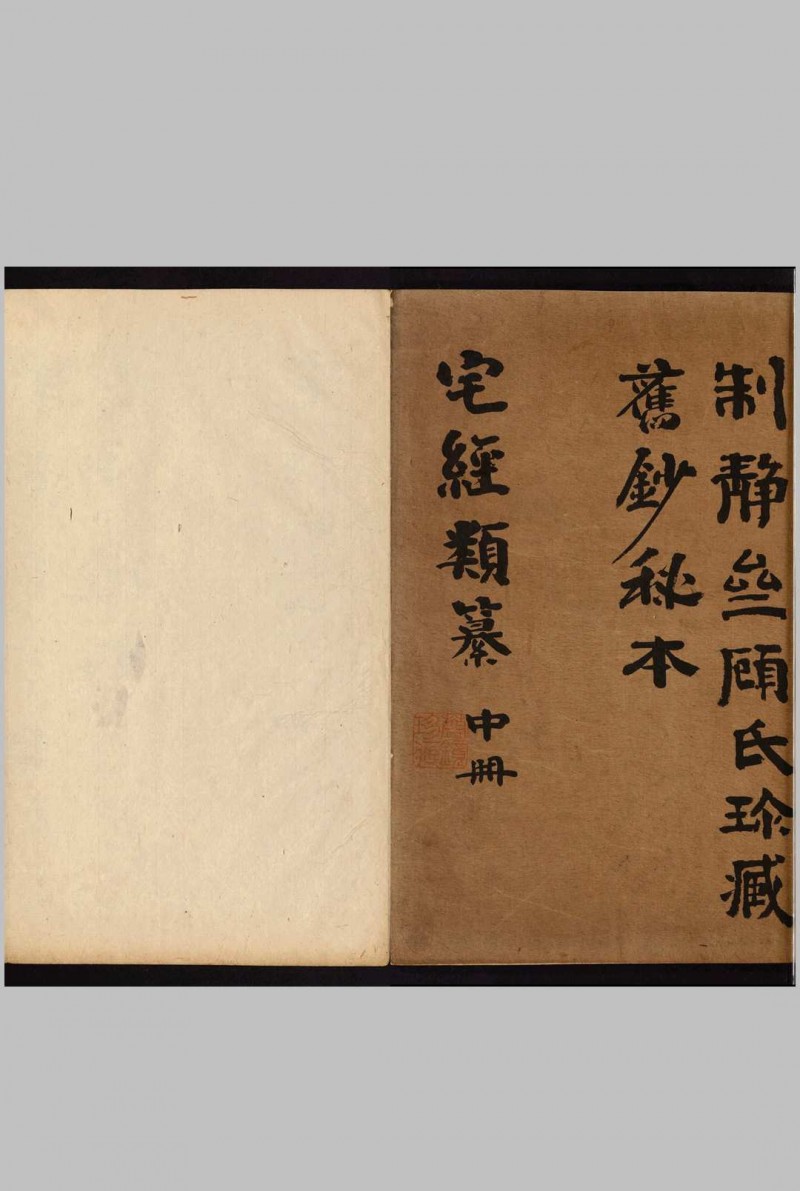 制靜壘顧氏珍藏
舊鈔秘本
宅經類纂 中冊